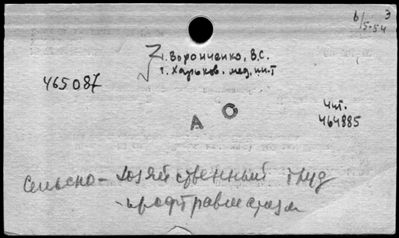 6/5-54 3
1. Воронченко, В.С.
г. Харьков. мед. ин-т
465087
А О
Чит.
464885
Сельско-хозяйственный труд
- профтравматизм